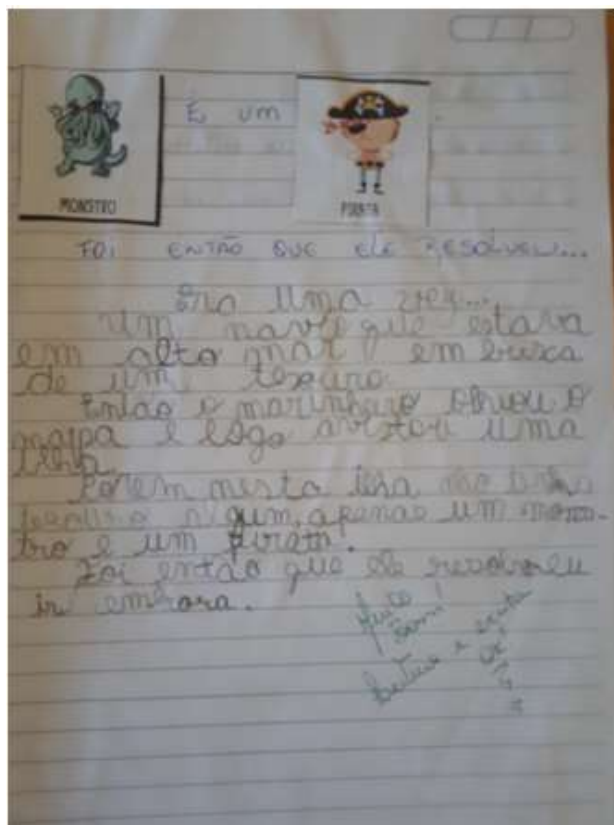 MONSTRO
E UM
PIRATA
FOI ENTÃO QUE ELE RESOLVEU...
Era uma vez...
um navio que estava
em alto mar em busca
de um tesouro
Então o marinheiro olhou o
mapa e logo avistou uma
ilha
Porém nesta ilha não tinha
tesouro algum, apenas um mons-
tro e um pirata.
Foi então que ele resolveu
ir embora.
Muito
bom!
Leitura e escrita